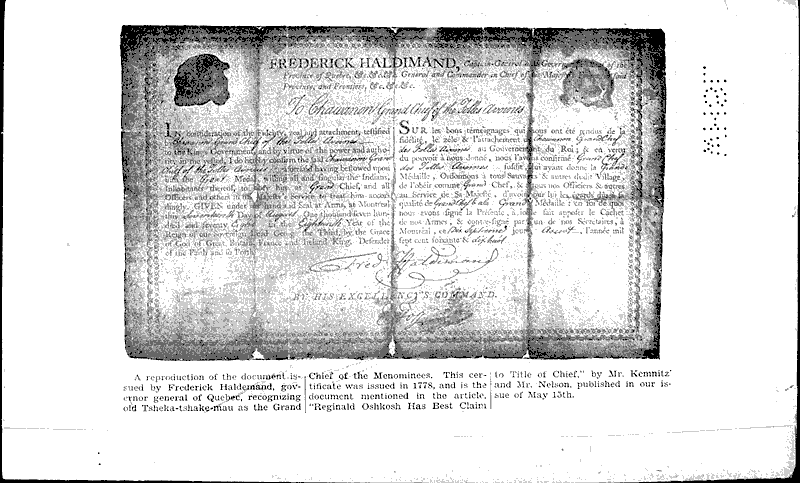 FREDERICK HALDIMAND, Captain-General and Governor of the
Province of Quebec, &c. &c. &c. General and Commander in Chief of His Majesty's
Province, and Frontiers, &c. &c. &c.
To Chawanon Grand Chief of the Folles Avoines
IN consideration of the fidelity, zeal and attachment, testified
Grand Chief of the Folles Avoines
to the King's Government, and by virtue of the power and autho-
rity in me vested, I do hereby confirm the said Chawanon Grand
Chief of the Folles Avoines having bestowed upon
the Great Medal, willing all and singular the Indians,
Inhabitants thereof, to obey him as Grand Chief, and all
Officers and others in his Majesty's Service to treat him accor-
dingly. GIVEN under my hand and Seal at Arms, at Montreal
this Seventeenth Day of August One thousand seven hun-
dred and seventy Eight in the Eighteenth Year of the
Reign of our Sovereign Lord George the Third, by the Grace
of God of Great Britain, France and Ireland King, Defender
of the Faith and so forth.
SUR les bons témoignages qui nous ont été rendus de la
fidélité, le zèle & l'attachement de Chawanon Grand Chef
des Folles Avoines au Gouvernement du Roi; & en vertu
du pouvoir à nous donné, nous l'avons confirmé Grand Chef
des Folles Avoines ayant donné la Grande
Médaille, Ordonnons à tous Sauvages & autres dudit Village,
de l'obéir comme Grand Chef, & à tous nos Officiers & autres
au Service de Sa Majesté, d'avoir pour lui les égards dûs à la
qualité de Grand Chef & à la Grande Médaille: en foi de quoi
nous avons signé la Présente, à icelle fait apposer le Cachet
de nos Armes, & contresigné par un de nos Sécretaires, à
Montréal, ce Dix Septieme jour Aoust, l'année mil
sept cent soixante & dixhuit
Fred Haldimand
BY HIS EXCELLENCY'S COMMAND.
A reproduction of the document is-
sued by Frederick Haldemand, gov-
ernor general of Quebec, recognizing
old Tsheka-tshake-mau as the Grand
Chief of the Menominees. This cer-
tificate was issued in 1778, and is the
document mentioned in the article,
"Reginald Oshkosh Has Best Claim
to Title of Chief," by Mr. Kemnitz
and Mr. Nelson, published in our is-
sue of May 15th.